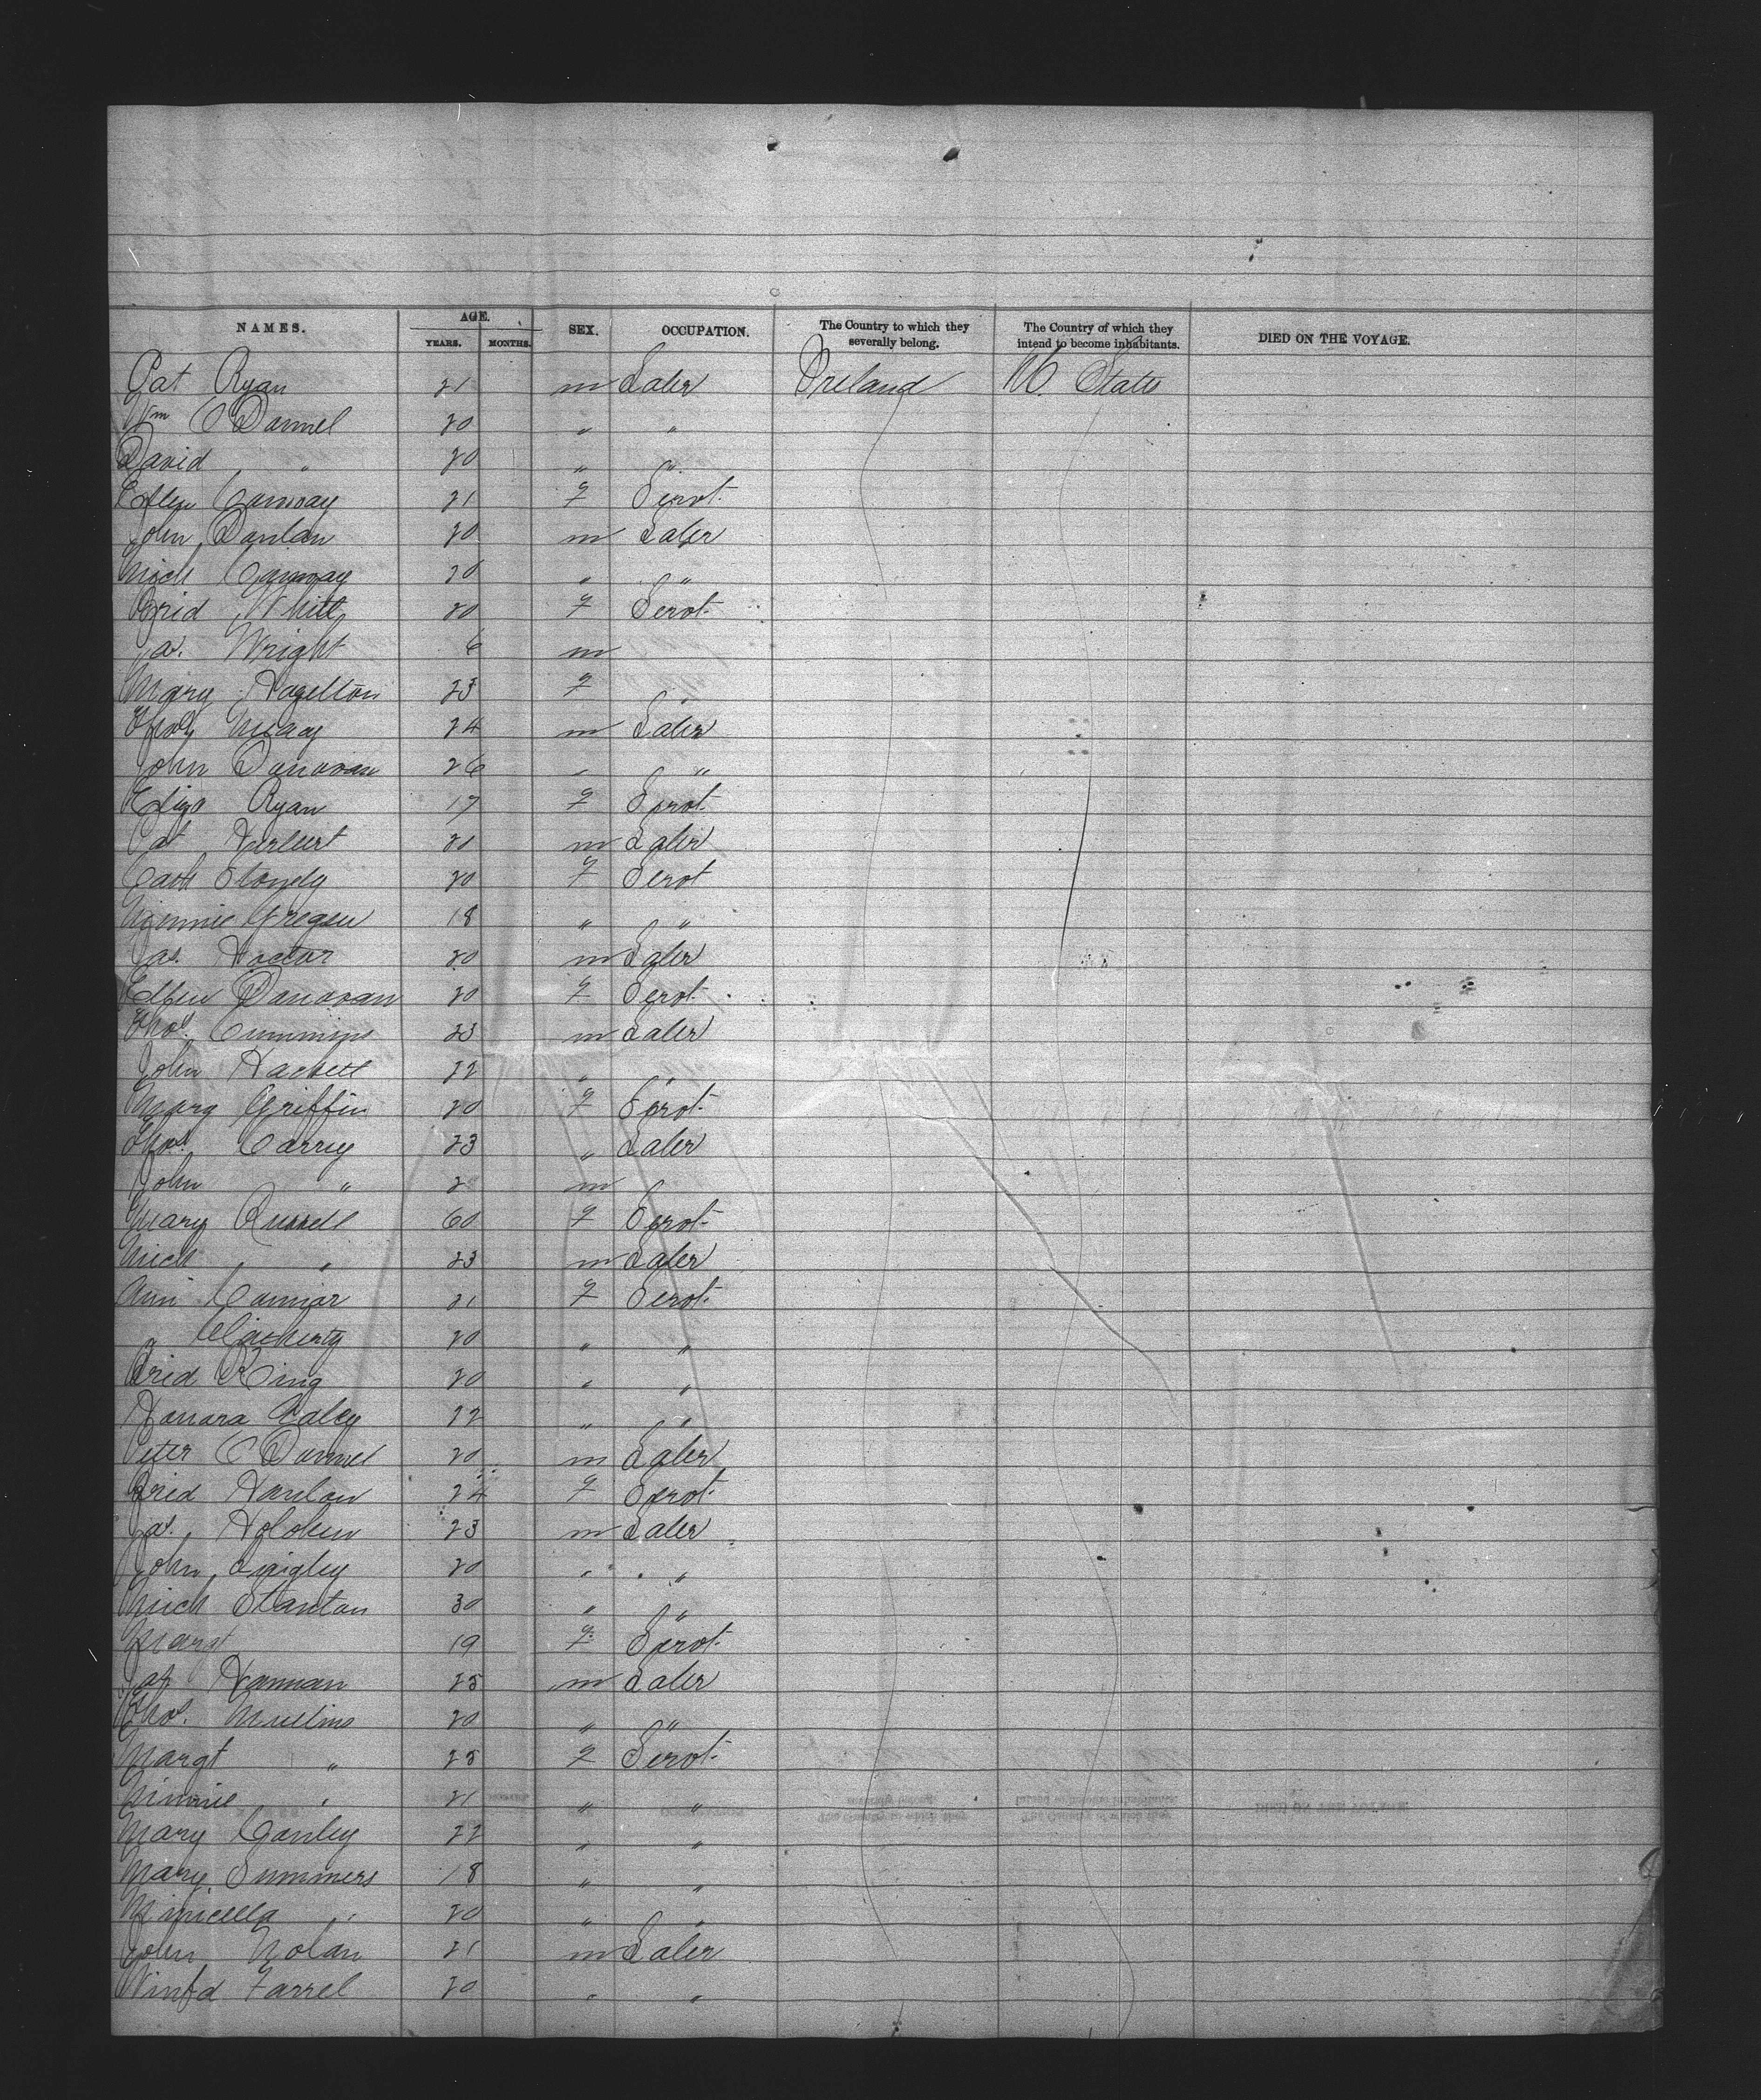 NAMES. AGE. SEX. OCCUPATION. The Country to which they severally belong. The Country of which they intend to become inhabitants. DIED ON THE VOYAGE.
YEARS. MONTHS.
Pat Ryan 21 m Laber Ireland U. States
Wm O Donnel 20 " "
David " 20 " "
Ellen Conway 21 f Servt
John Donlan 20 m Laber
Mich Conway 20 " "
Brid White 20 f Servt
Jas. Wright 6 m
Mary Hazelton 23 f
Thos 24 m Laber
John Donovan 26 " "
Eliza Ryan 17 f Servt
Pat Herbert 20 m Laber
Cath 20 f Servt
18 " "
Jas. Hoctor 20 m Laber
Ellen Donovan 20 f Servt
Thos. Cummins 23 m Laber
John Hackett 22 " "
Marg Griffin 20 f Servt
Thos. Carry 23 " Laber
John " 2 m
Mary Russell 60 f Servt
Mich " 23 m Laber
Ann Connor 21 f Servt
" 20 " "
Brid King 20 " "
Honora Ealey 22 " "
Peter O Donnel 20 m Laber
Brid Hanlon 24 f Servt
Jas. Holohen 23 m Laber
John Quigley 20 " "
Mich Stanton 30 " "
Margt 19 f Servt
Hannan 25 m Laber
Thos. Mullins 20 " "
Margt " 25 f Servt
Minnie " 21 " "
Mary Conley 22 " "
Mary Summers 18 " "
" 20 " "
John Nolan 21 m Laber
Winfd Farrel 20 " "